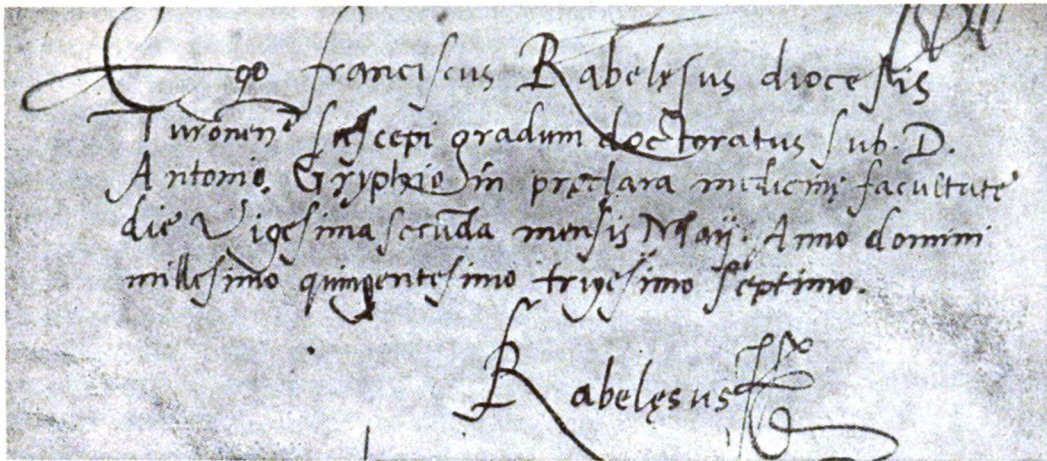 Ego franciscus Rabelęsus diocesis
Turonen̄ suscepi gradum doctoratus sub. D.
Antonio Gryphio in pręclara medicinę facultate
die Vigesima secūda mensis Maij. Anno domini
millesimo quingentesimo trigesimo septimo.
Rabelęsus